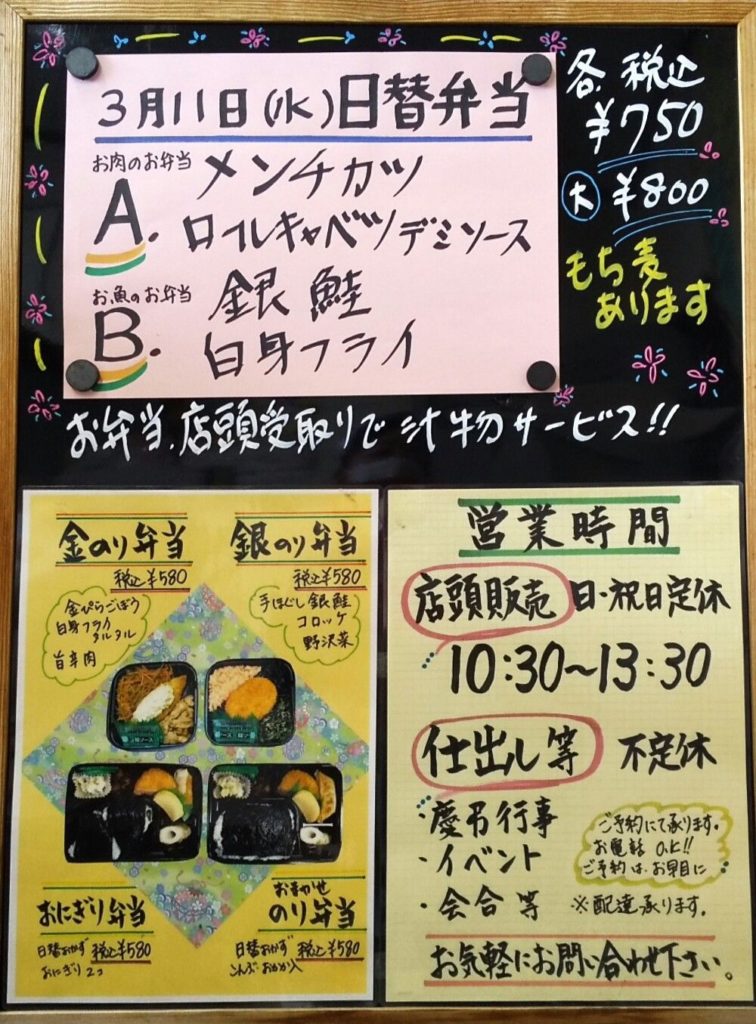 3月11日(水)日替弁当
お肉のお弁当
A. メンチカツ
ロールキャベツデミソース
お魚のお弁当
B. 銀鮭
白身フライ
各税込
¥750
大 ¥800
もち麦
あります
お弁当、店頭受取りで汁物サービス!!
金のり弁当
税込¥580
金ぴらごぼう
白身フライ
タルタル
旨辛肉
銀のり弁当
税込¥580
手ほぐし銀鮭
コロッケ
野沢菜
おにぎり弁当
日替おかず 税込¥580
おにぎり2コ
おまかせ
のり弁当
日替おかず 税込¥580
こんぶ・おかか入
営業時間
店頭販売 日・祝日定休
10:30~13:30
仕出し等 不定休
・慶弔行事
・イベント
・会合等
ご予約にて承ります。
お電話O.K!!
ご予約は、お早目に
※配達承ります。
お気軽にお問い合わせ下さい。